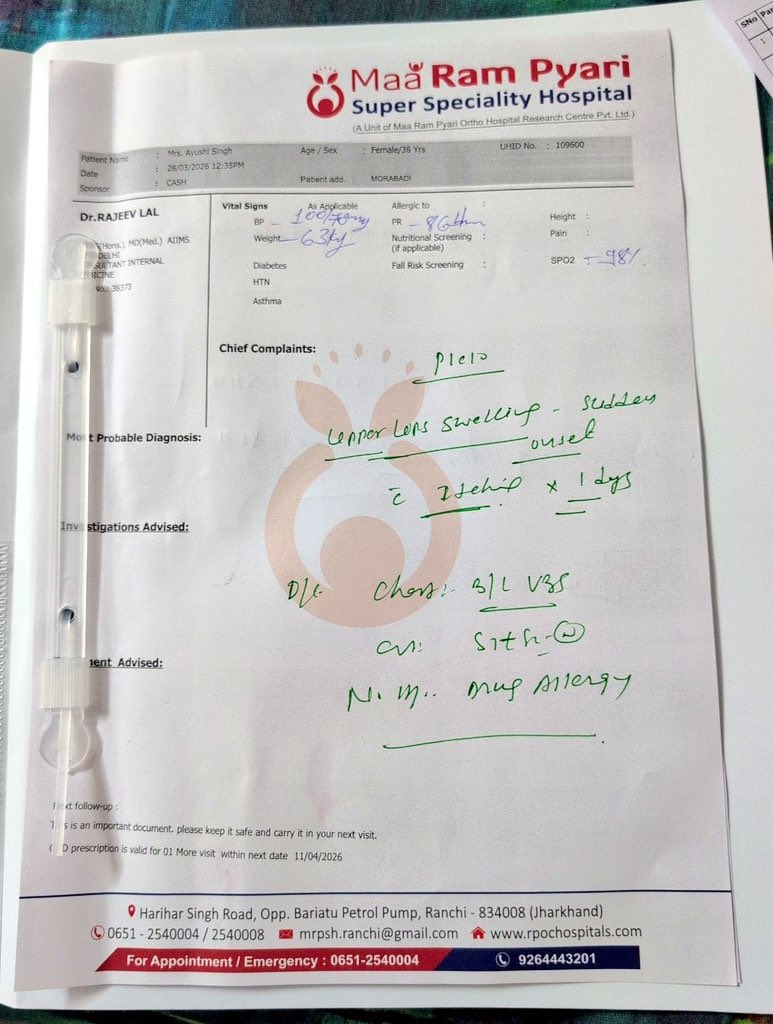 SNo
1
Maa Ram Pyari
Super Speciality Hospital
(A Unit of Maa Ram Pyari Ortho Hospital Research Centre Pvt. Ltd.)
Patient Name : Mrs. Ayushi Singh Age / Sex : Female/36 Yrs UHID No. : 109600
Date : 28/03/2026 12:35PM
Sponsor : CASH Patient add. MORABADI
Dr.RAJEEV LAL
(Hons.), MD(Med.) AIIMS
DELHI
SULTANT INTERNAL
ICINE
No.: 38373
Vital Signs As Applicable Allergic to :
BP - 100/70 PR - 86 Height :
Weight - 63kg Nutritional Screening : Pain :
(if applicable)
Diabetes Fall Risk Screening : SPO2 : - 98%
HTN
Asthma
Chief Complaints:
Upper Lips swelling - sudden
onset
c̄ × 1 days
Most Probable Diagnosis:
Investigations Advised:
O/E Chest:- B/L VBS
S1+S2- (N)
Drug Allergy
ment Advised:
ext follow-up :
This is an important document. please keep it safe and carry it in your next visit.
OPD prescription is valid for 01 More visit within next date 11/04/2026
Harihar Singh Road, Opp. Bariatu Petrol Pump, Ranchi - 834008 (Jharkhand)
0651 - 2540004 / 2540008 mrpsh.ranchi@gmail.com www.rpochospitals.com
For Appointment / Emergency : 0651-2540004 9264443201